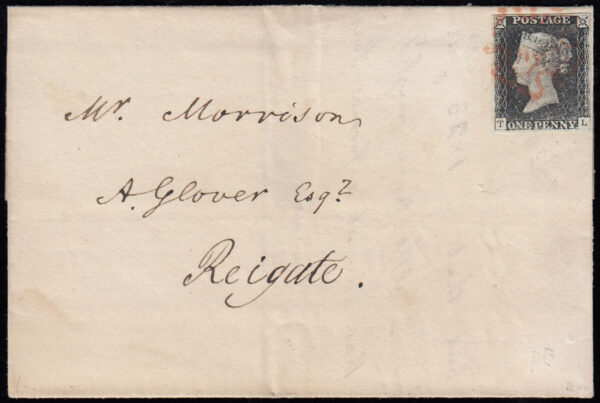 POSTAGE
T ONE PENNY L
Mr. Morrison
A. Glover Esqr.
Reigate.